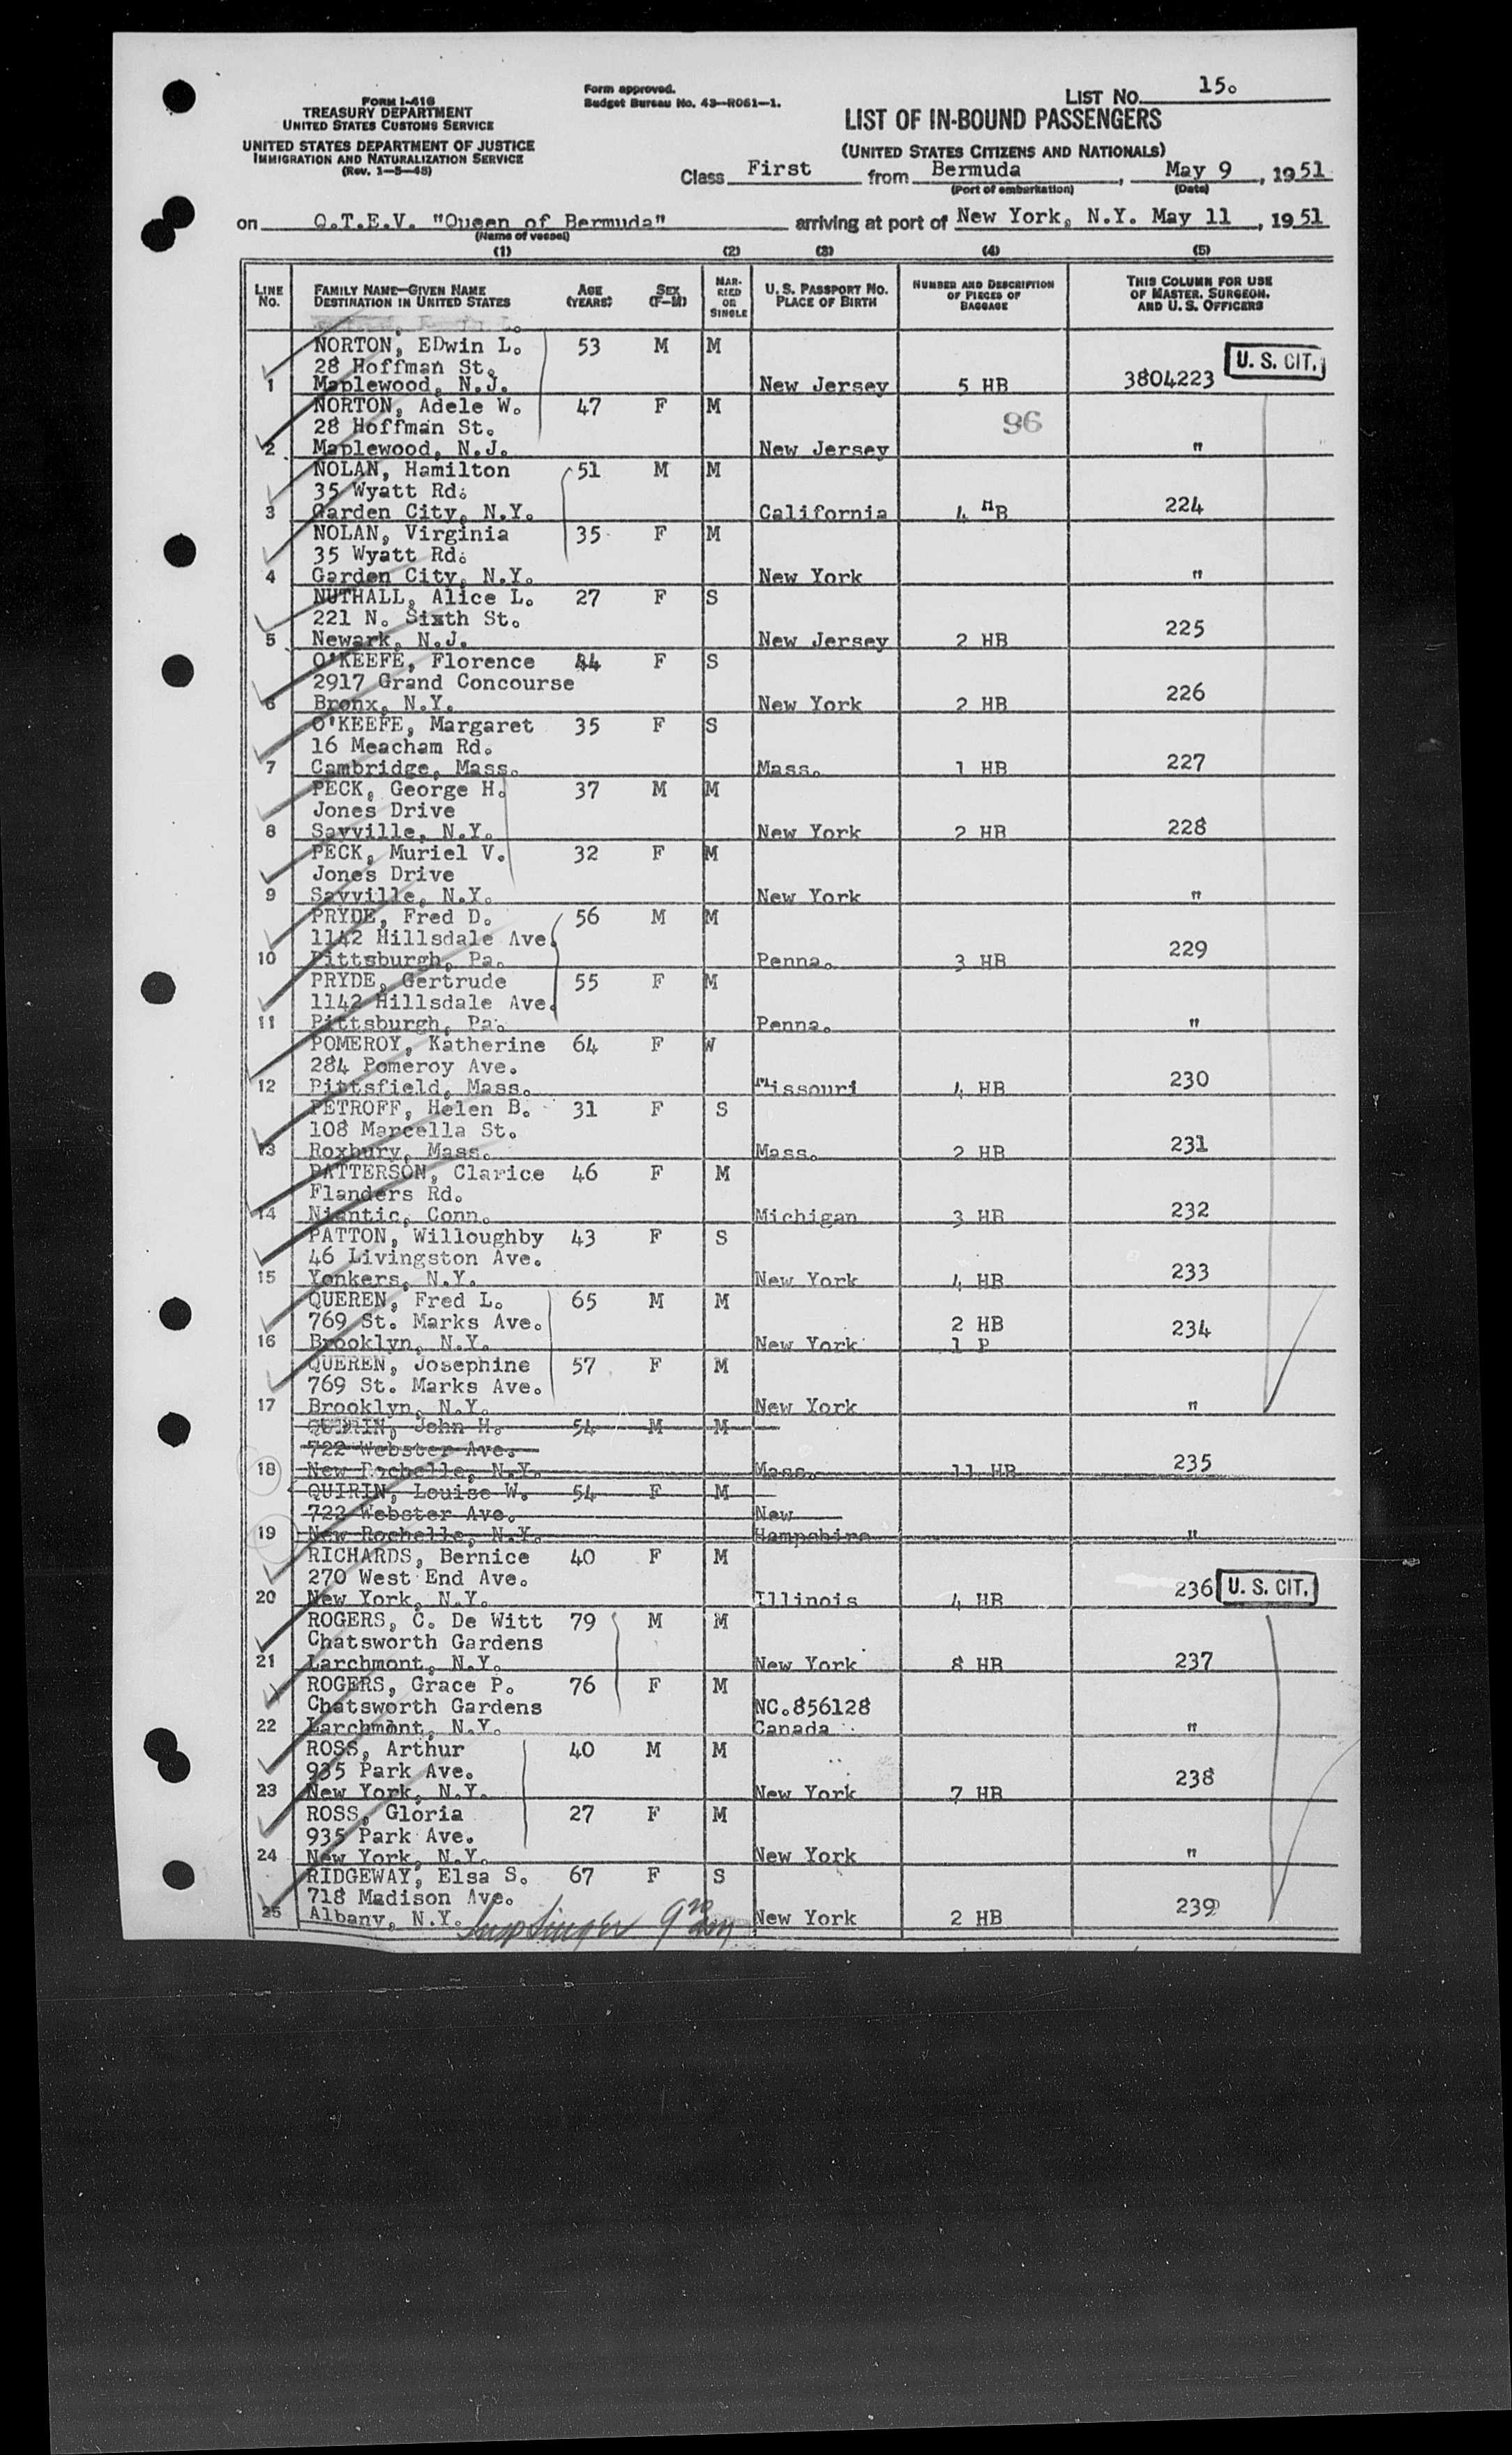 FORM I-416
TREASURY DEPARTMENT
UNITED STATES CUSTOMS SERVICE
UNITED STATES DEPARTMENT OF JUSTICE
IMMIGRATION AND NATURALIZATION SERVICE
(Rev. 1-5-48)
Form approved.
Budget Bureau No. 43-R061-1.
LIST NO. 15.
LIST OF IN-BOUND PASSENGERS
(UNITED STATES CITIZENS AND NATIONALS)
Class First from Bermuda, May 9, 1951
(Port of embarkation) (Date)
on Q.T.E.V. "Queen of Bermuda" arriving at port of New York, N.Y. May 11, 1951
(Name of vessel)
(1) (2) (3) (4) (5)
LINE NO. FAMILY NAME—GIVEN NAME DESTINATION IN UNITED STATES AGE (YEARS) SEX (F-M) MARRIED OR SINGLE U.S. PASSPORT NO. PLACE OF BIRTH NUMBER AND DESCRIPTION OF PIECES OF BAGGAGE THIS COLUMN FOR USE OF MASTER, SURGEON, AND U.S. OFFICERS
NORTON, EDwin L. 53 M M
28 Hoffman St. U.S. CIT.
1 Maplewood, N.J. New Jersey 5 HB 3804223
NORTON, Adele W. 47 F M
28 Hoffman St. 96
2 Maplewood, N.J. New Jersey "
NOLAN, Hamilton 51 M M
35 Wyatt Rd.
3 Garden City, N.Y. California 4 HB 224
NOLAN, Virginia 35 F M
35 Wyatt Rd.
4 Garden City, N.Y. New York "
NUTHALL, Alice L. 27 F S
221 N. Sixth St.
5 Newark, N.J. New Jersey 2 HB 225
O'KEEFE, Florence 44 F S
2917 Grand Concourse
6 Bronx, N.Y. New York 2 HB 226
O'KEEFE, Margaret 35 F S
16 Meacham Rd.
7 Cambridge, Mass. Mass. 1 HB 227
PECK, George H. 37 M M
Jones Drive
8 Sayville, N.Y. New York 2 HB 228
PECK, Muriel V. 32 F M
Jones Drive
9 Sayville, N.Y. New York "
PRYDE, Fred D. 56 M M
1142 Hillsdale Ave.
10 Pittsburgh, Pa. Penna. 3 HB 229
PRYDE, Gertrude 55 F M
1142 Hillsdale Ave.
11 Pittsburgh, Pa. Penna. "
POMEROY, Katherine 64 F W
284 Pomeroy Ave.
12 Pittsfield, Mass. Missouri 4 HB 230
PETROFF, Helen B. 31 F S
108 Marcella St.
13 Roxbury, Mass. Mass. 2 HB 231
PATTERSON, Clarice 46 F M
Flanders Rd.
14 Niantic, Conn. Michigan 3 HB 232
PATTON, Willoughby 43 F S
46 Livingston Ave.
15 Yonkers, N.Y. New York 4 HB 233
QUEREN, Fred L. 65 M M
769 St. Marks Ave. 2 HB
16 Brooklyn, N.Y. New York 1 P 234
QUEREN, Josephine 57 F M
769 St. Marks Ave.
17 Brooklyn, N.Y. New York "
QUIRIN, John H. 54 M M
722 Webster Ave.
18 New Rochelle, N.Y. Mass. 11 HB 235
QUIRIN, Louise W. 54 F M
722 Webster Ave. New
19 New Rochelle, N.Y. Hampshire "
RICHARDS, Bernice 40 F M
270 West End Ave.
20 New York, N.Y. Illinois 4 HB 236 U.S. CIT.
ROGERS, C. De Witt 79 M M
Chatsworth Gardens
21 Larchmont, N.Y. New York 8 HB 237
ROGERS, Grace P. 76 F M
Chatsworth Gardens NC.856128
22 Larchmont, N.Y. Canada "
ROSS, Arthur 40 M M
935 Park Ave.
23 New York, N.Y. New York 7 HB 238
ROSS, Gloria 27 F M
935 Park Ave.
24 New York, N.Y. New York "
RIDGEWAY, Elsa S. 67 F S
718 Madison Ave.
25 Albany, N.Y. New York 2 HB 239